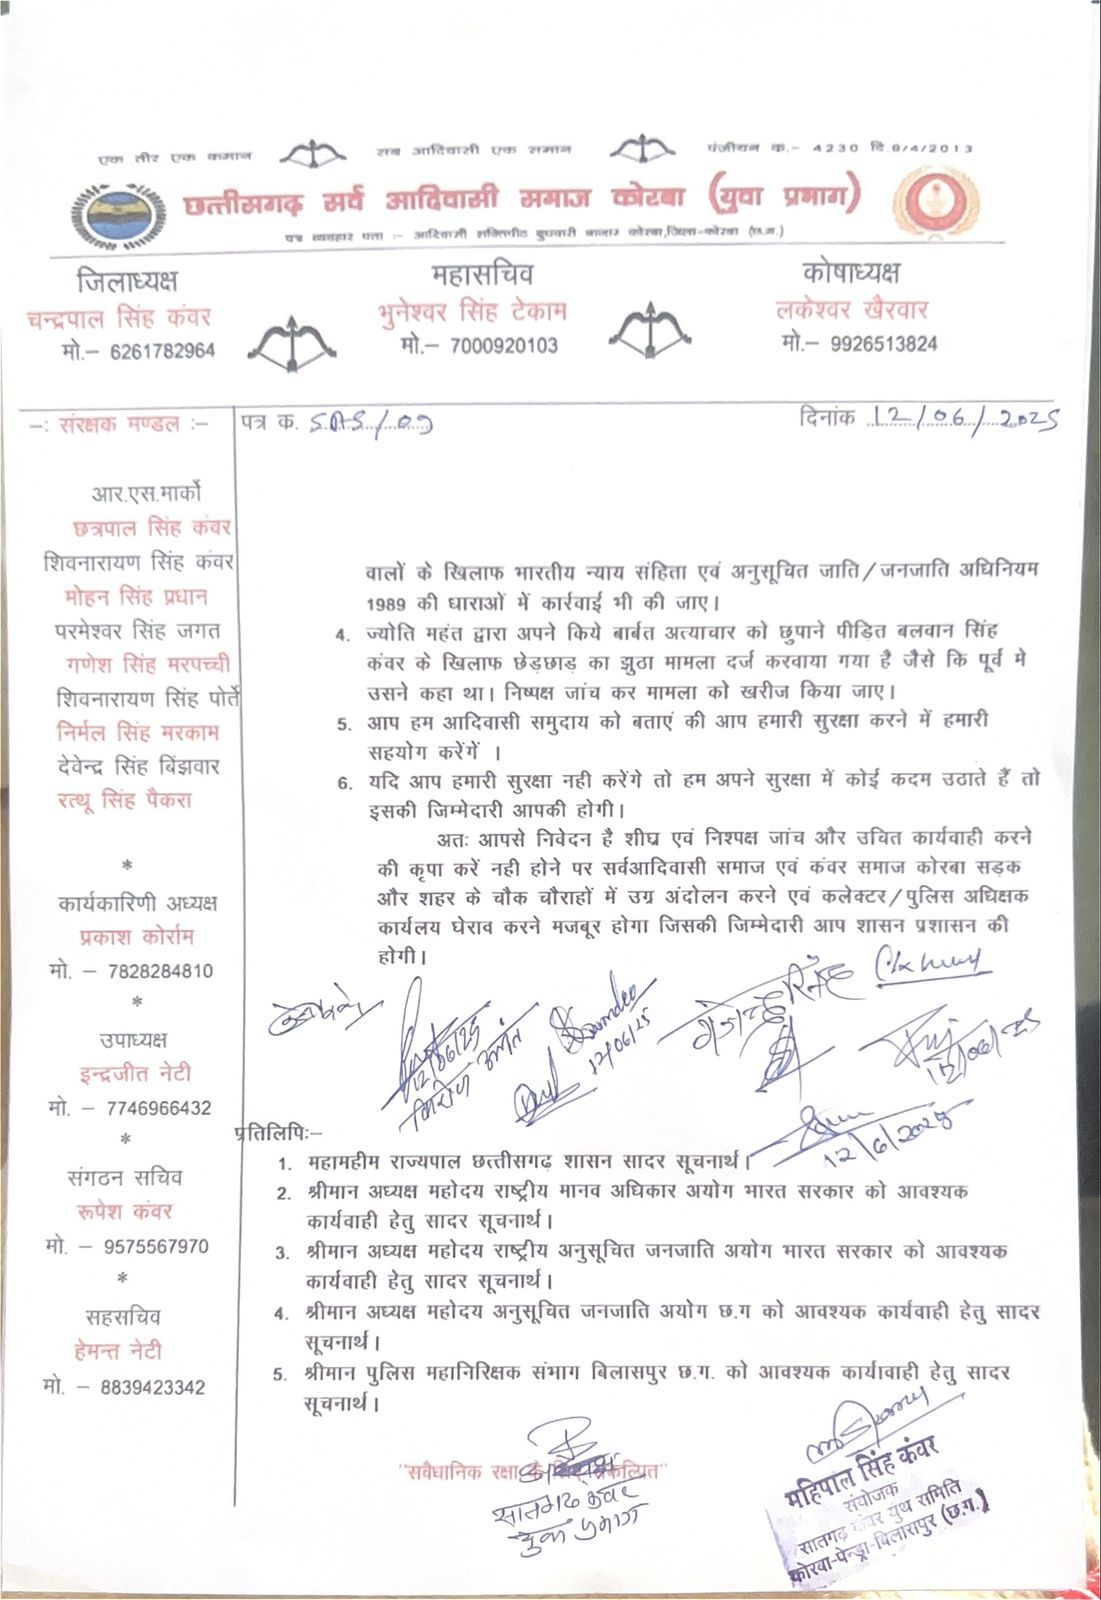 एक तीर एक कमान
सब आदिवासी एक समान
पंजीयन क.- 4230 दि.8/4/2013
छत्तीसगढ़ सर्व आदिवासी समाज कोरबा (युवा प्रभाग)
पत्र व्यवहार पता :- आदिवासी शक्तिपीठ बुधवारी बाजार कोरबा,जिला-कोरबा (छ.ग.)
जिलाध्यक्ष
चन्द्रपाल सिंह कंवर
मो.– 6261782964
महासचिव
भुनेश्वर सिंह टेकाम
मो.– 7000920103
कोषाध्यक्ष
लकेश्वर खैरवार
मो.– 9926513824
–: संरक्षक मण्डल :–
पत्र क.
दिनांक 12/06/2025
आर.एस.मार्को
छत्रपाल सिंह कंवर
शिवनारायण सिंह कंवर
मोहन सिंह प्रधान
परमेश्वर सिंह जगत
गणेश सिंह मरपच्ची
शिवनारायण सिंह पोर्ते
निर्मल सिंह मरकाम
देवेन्द्र सिंह बिंझवार
रत्थू सिंह पैकरा
*
कार्यकारिणी अध्यक्ष
प्रकाश कोर्राम
मो. – 7828284810
*
उपाध्यक्ष
इन्द्रजीत नेटी
मो. – 7746966432
*
संगठन सचिव
रूपेश कंवर
मो. – 9575567970
*
सहसचिव
हेमन्त नेटी
मो. – 8839423342
वालों के खिलाफ भारतीय न्याय संहिता एवं अनुसूचित जाति/जनजाति अधिनियम
1989 की धाराओं में कार्रवाई भी की जाए।
4. ज्योति महंत द्वारा अपने किये बार्बत अत्याचार को छुपाने पीड़ित बलवान सिंह
कंवर के खिलाफ छेड़छाड़ का झुठा मामला दर्ज करवाया गया है जैसे कि पूर्व मे
उसने कहा था। निष्पक्ष जांच कर मामला को खरीज किया जाए।
5. आप हम आदिवासी समुदाय को बताएं की आप हमारी सुरक्षा करने में हमारी
सहयोग करेंगें ।
6. यदि आप हमारी सुरक्षा नही करेंगे तो हम अपने सुरक्षा में कोई कदम उठाते हैं तो
इसकी जिम्मेदारी आपकी होगी।
अतः आपसे निवेदन है शीघ्र एवं निश्पक्ष जांच और उचित कार्यवाही करने
की कृपा करें नही होने पर सर्वआदिवासी समाज एवं कंवर समाज कोरबा सड़क
और शहर के चौक चौराहों में उग्र अंदोलन करने एवं कलेक्टर/पुलिस अधिक्षक
कार्यलय घेराव करने मजबूर होगा जिसकी जिम्मेदारी आप शासन प्रशासन की
होगी।
12/06/25
12/06/25
गजेन्द्र सिंह
12/06/25
12/6/2025
प्रतिलिपिः–
1. महामहीम राज्यपाल छत्तीसगढ़ शासन सादर सूचनार्थ।
2. श्रीमान अध्यक्ष महोदय राष्ट्रीय मानव अधिकार अयोग भारत सरकार को आवश्यक
कार्यवाही हेतु सादर सूचनार्थ।
3. श्रीमान अध्यक्ष महोदय राष्ट्रीय अनुसूचित जनजाति अयोग भारत सरकार को आवश्यक
कार्यवाही हेतु सादर सूचनार्थ।
4. श्रीमान अध्यक्ष महोदय अनुसूचित जनजाति अयोग छ.ग को आवश्यक कार्यवाही हेतु सादर
सूचनार्थ।
5. श्रीमान पुलिस महानिरिक्षक संभाग बिलासपुर छ.ग. को आवश्यक कार्यावाही हेतु सादर
सूचनार्थ।
"सवैधानिक रक्षा
सातगढ़ कंवर
युवा प्रभाग
महिपाल सिंह कंवर
संयोजक
सातगढ़ कंवर युथ समिति
कोरबा-पेन्ड्रा-बिलासपुर (छ.ग.)